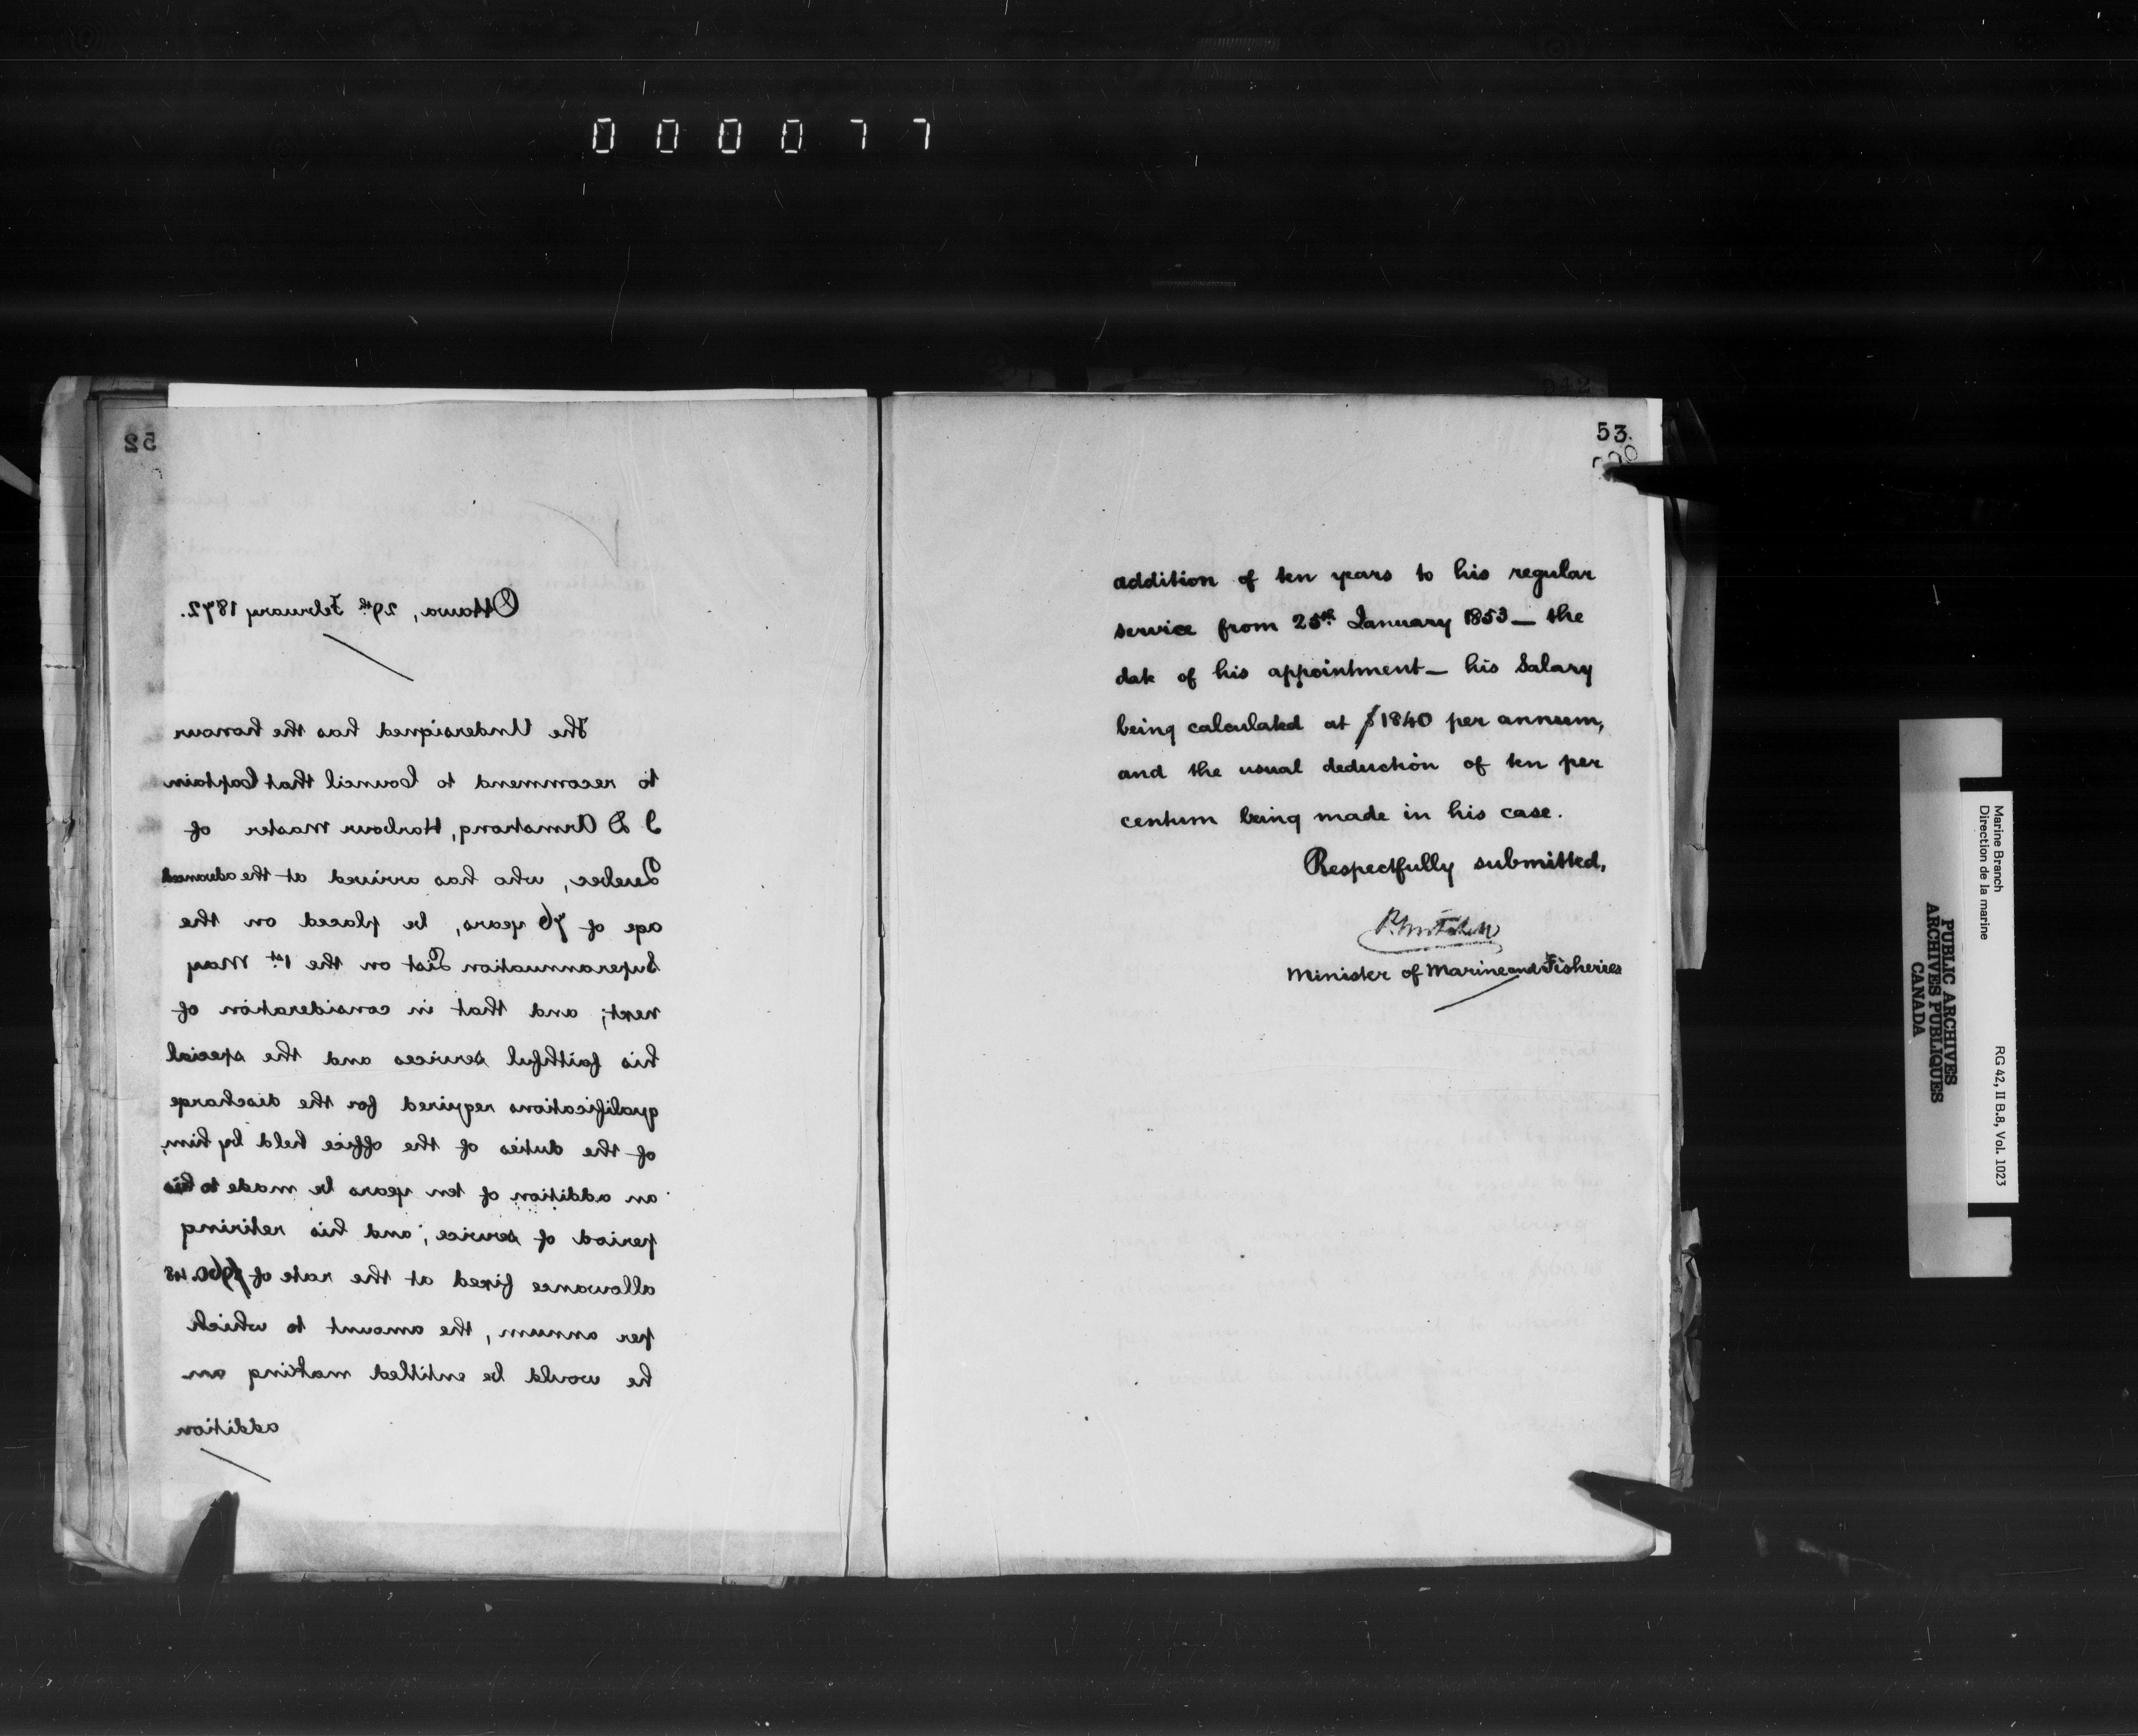 0 0 0 0 7 7
52
Ottawa, 29th February 1872.
The Undersigned has the honour
to recommend to Council that Captain
J D Armstrong, Harbour Master of
Quebec, who has arrived at the advanced
age of 76 years, be placed on the
Superannuation List on the 1st May
next; and that in consideration of
his faithful services and the special
qualifications required for the discharge
of the duties of the office held by him,
an addition of ten years be made to his
period of service; and his retiring
allowance fixed at the rate of $960.48
per annum, the amount to which
he would be entitled making an
addition
53.
addition of ten years to his regular
service from 25th January 1853 — the
date of his appointment — his Salary
being calculated at $1840 per annum,
and the usual deduction of ten per
centum being made in his case.
Respectfully submitted,
P. Mitchell
Minister of Marine and Fisheries
Marine Branch
Direction de la marine
RG 42, II B.8, Vol. 1023
PUBLIC ARCHIVES
ARCHIVES PUBLIQUES
CANADA